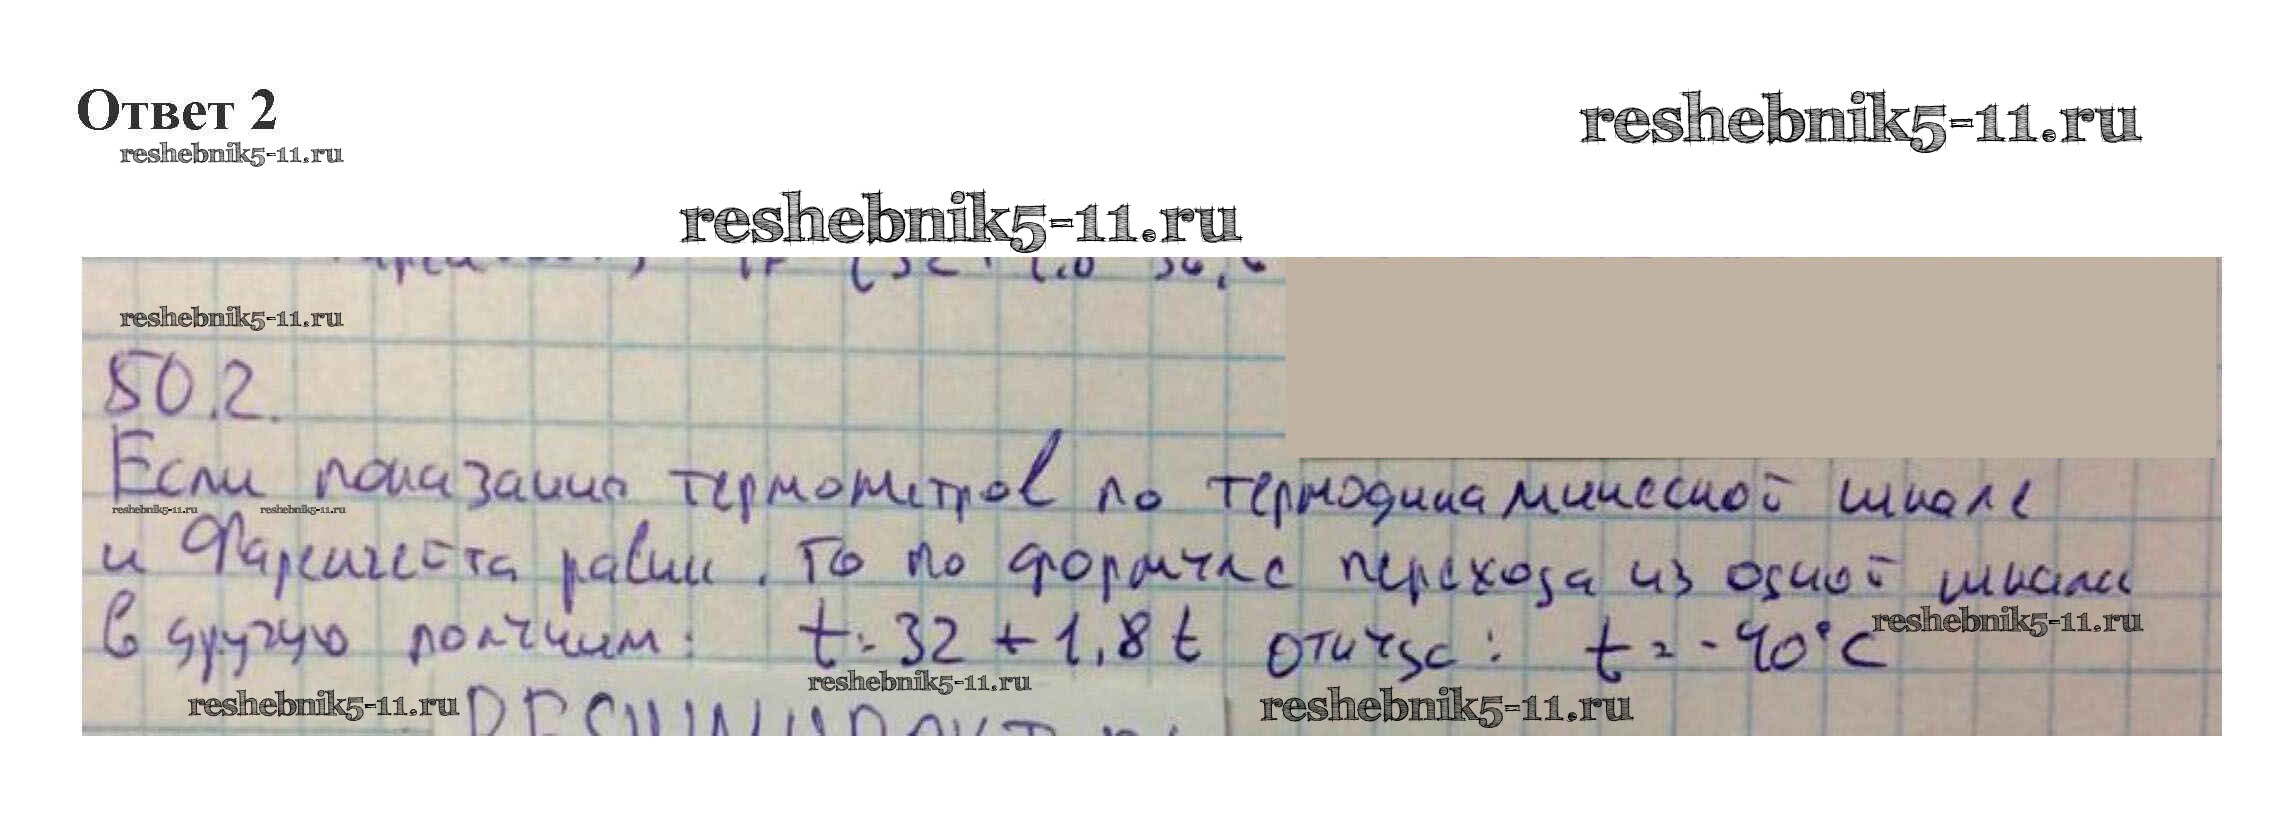 Ответ 2
reshebnik5-11.ru
reshebnik5-11.ru
reshebnik5-11.ru
reshebnik5-11.ru
50.2.
Если показания термометров по термодинамической шкале
reshebnik5-11.ru reshebnik5-11.ru
и Фаренгейта равны, то по формуле перехода из одной шкалы
reshebnik5-11.ru
в другую получим: t = 32 + 1,8 t откуда: t = -40°C
reshebnik5-11.ru
reshebnik5-11.ru
reshebnik5-11.ru